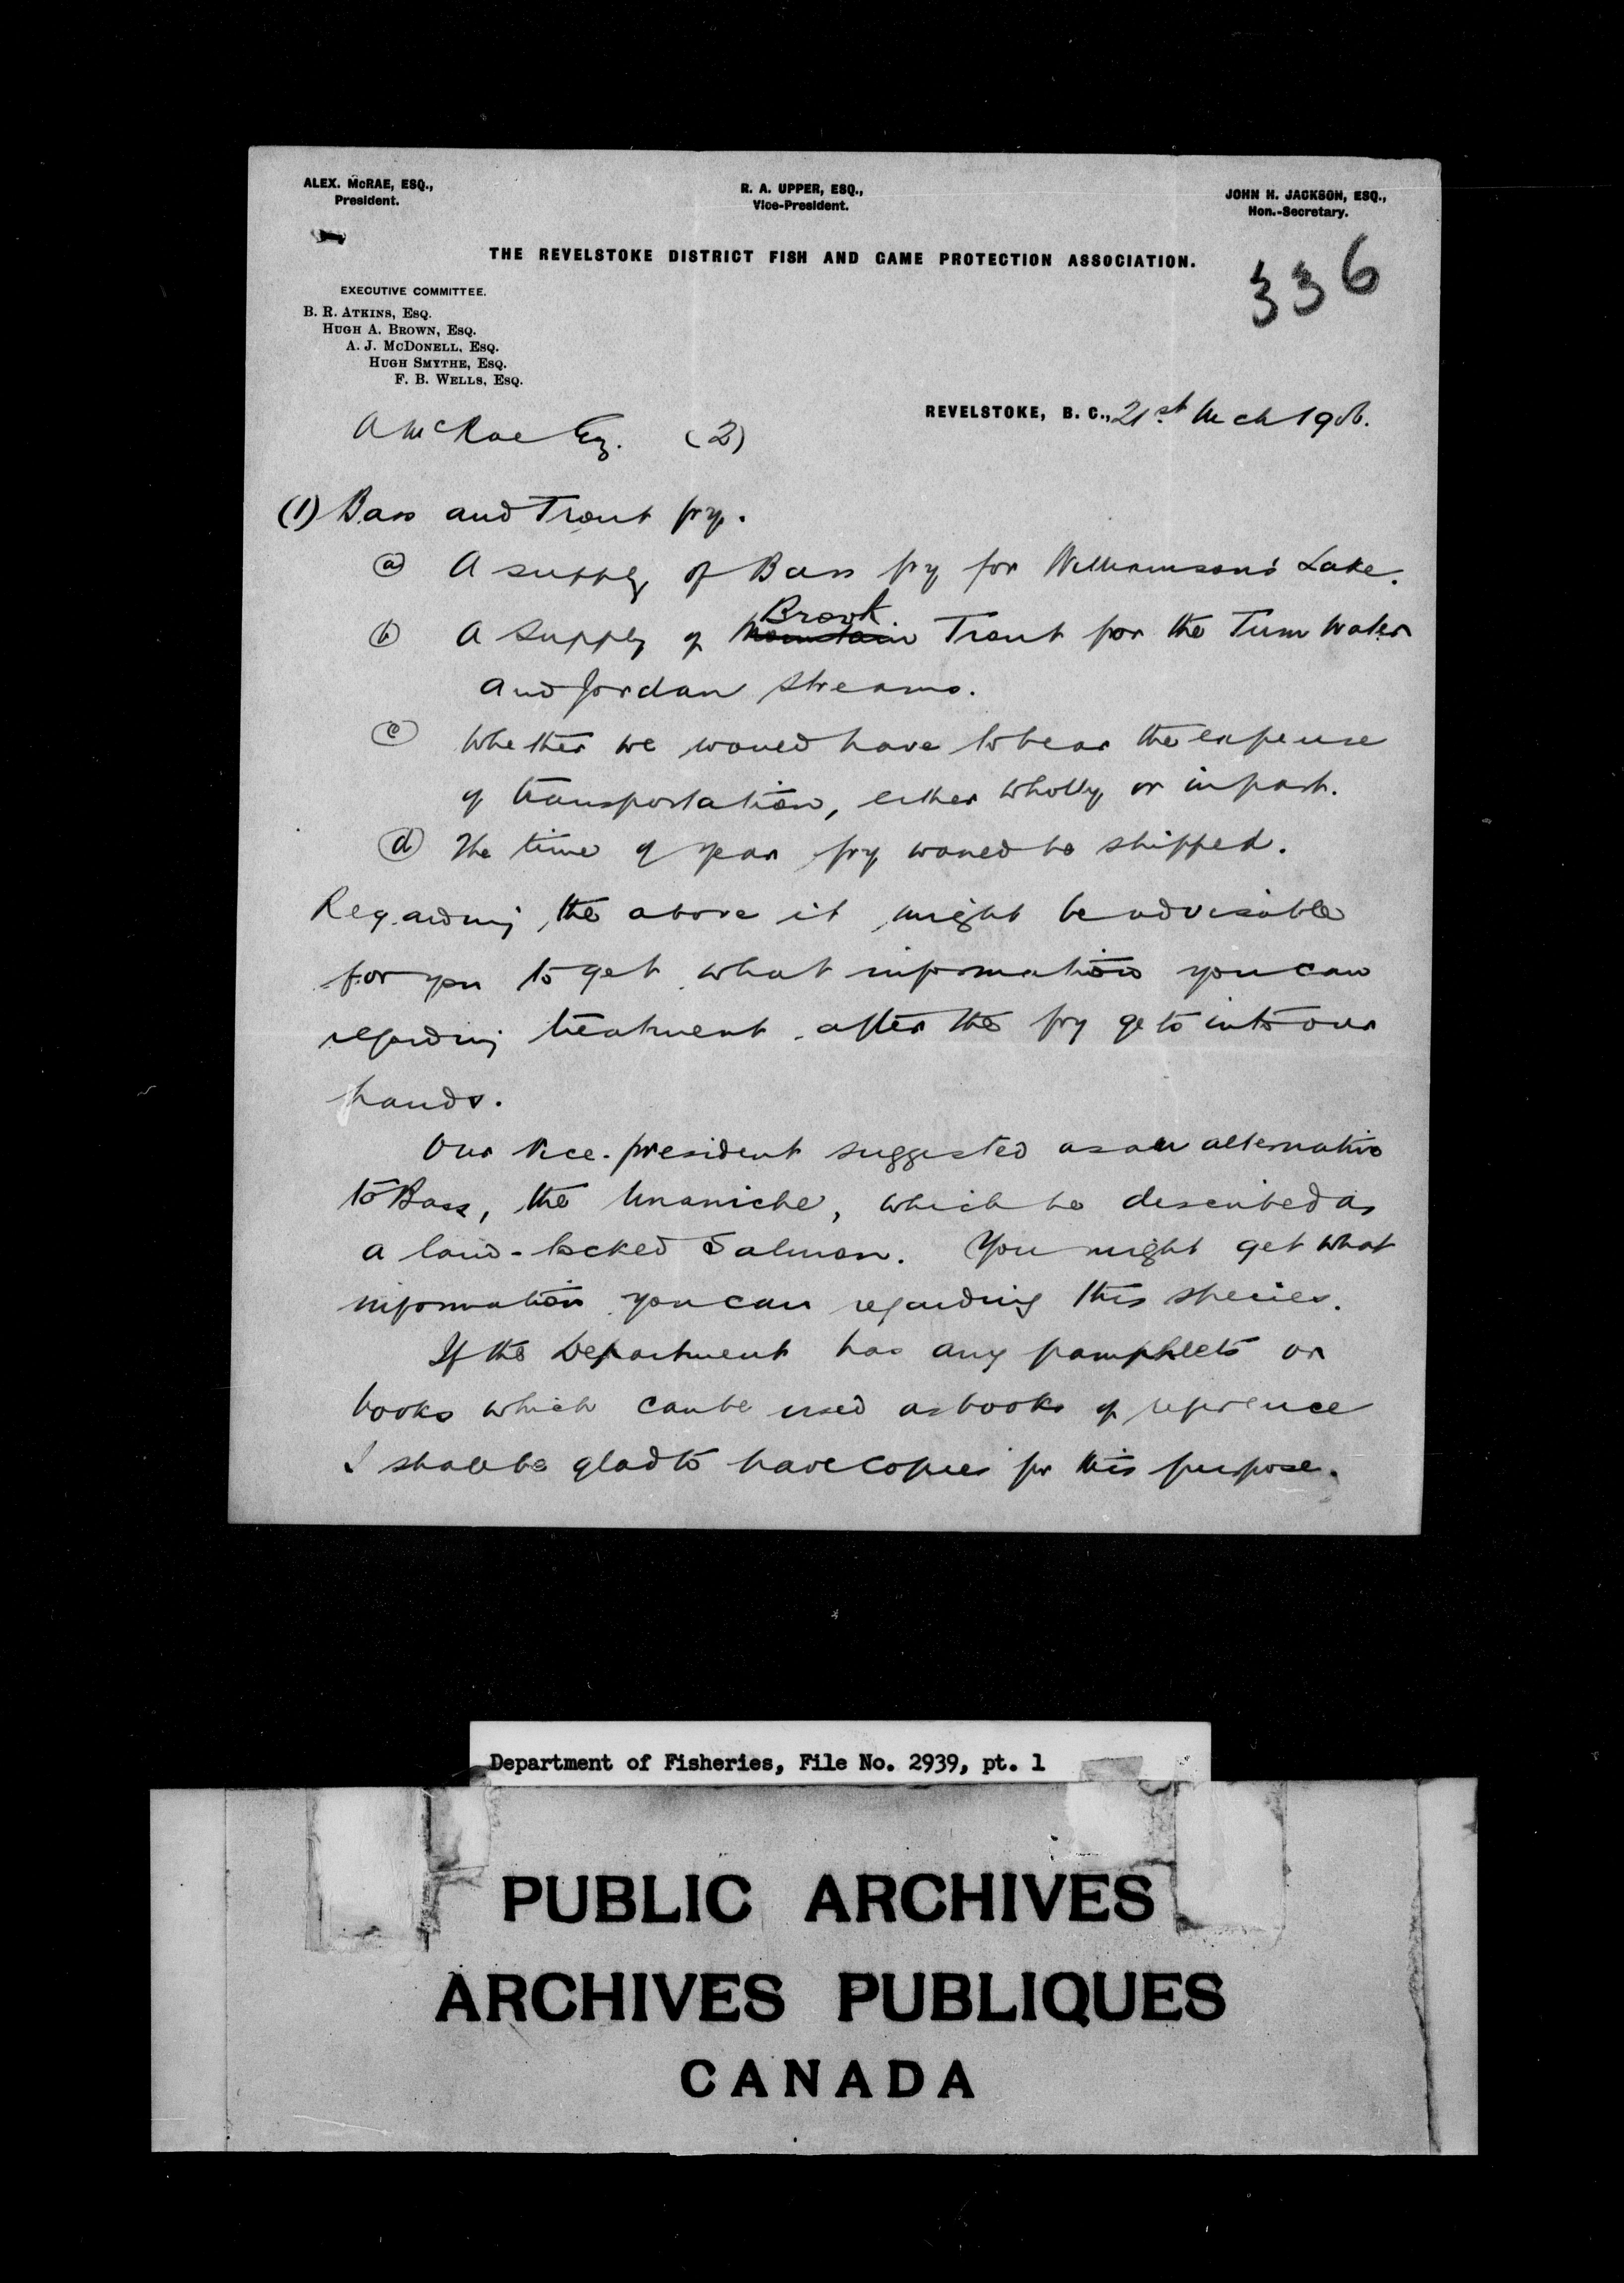 ALEX. McRAE, ESQ.,
President.
R. A. UPPER, ESQ.,
Vice-President.
JOHN H. JACKSON, ESQ.,
Hon.-Secretary.
THE REVELSTOKE DISTRICT FISH AND GAME PROTECTION ASSOCIATION.
336
EXECUTIVE COMMITTEE.
B. R. ATKINS, ESQ.
HUGH A. BROWN, ESQ.
A. J. McDONELL, ESQ.
HUGH SMYTHE, ESQ.
F. B. WELLS, ESQ.
REVELSTOKE, B. C., 21st Mch 1906.
A McRae Esq. (2)
(1) Bass and Trout fry.
(a) A supply of Bass fry for Williamson's Lake.
Brook
(b) A supply of Mountain Trout for the Tum Water
and Jordan Streams.
(c) Whether we would have to bear the expense
of transportation, either wholly or in part.
(d) The time of year fry would be shipped.
Regarding the above it might be advisable
for you to get what information you can
regarding treatment after the fry gets into our
hands.
Our Vice-president suggested as an alternative
to Bass, the Unaniche, which he described as
a land-locked Salmon. You might get what
information you can regarding this species.
If the Department has any pamphlets or
books which can be used as books of reference
I shall be glad to have copies for this purpose.
Department of Fisheries, File No. 2939, pt. 1
PUBLIC ARCHIVES
ARCHIVES PUBLIQUES
CANADA